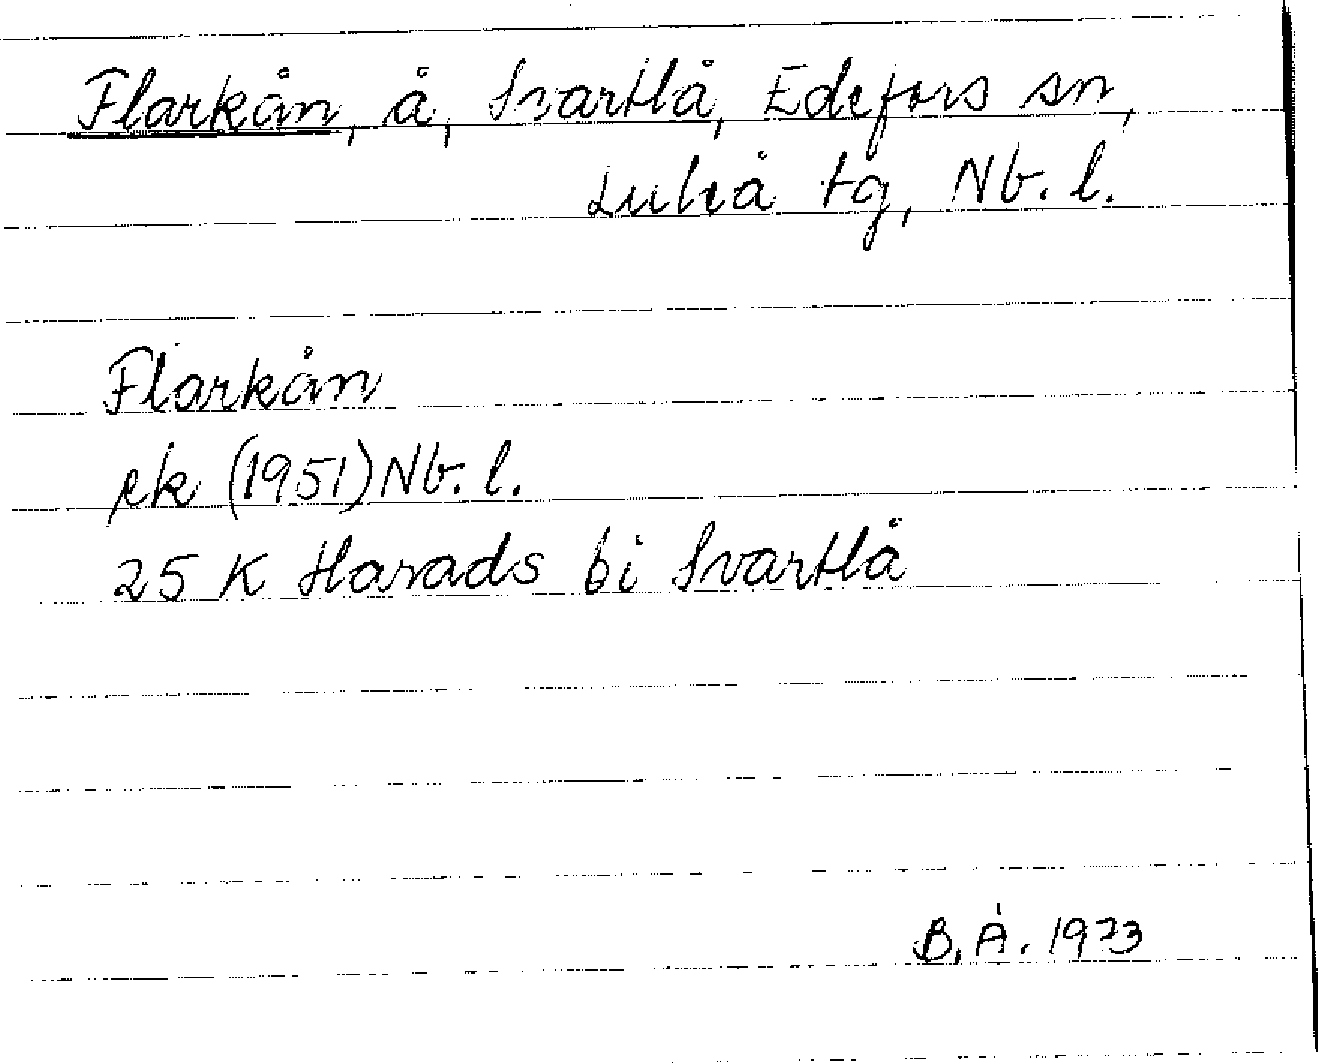 Flarkån, å, Svartlå, Edefors sn,
Luleå tg, Nb. l.
Flarkån
ek (1951) Nb. l.
25 K Harads bi Svartlå
B. Å. 1973